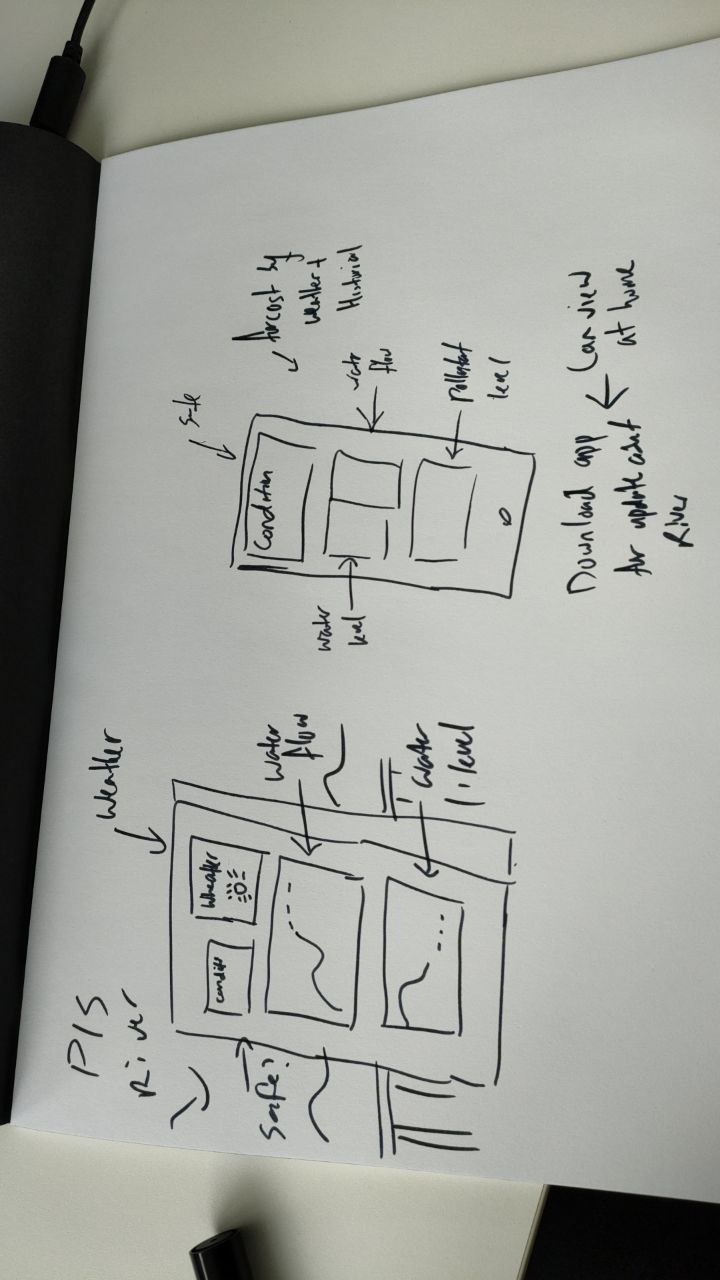 PIS
River
Weather
Condit
Wheather
Safe?
water
flow
water
level
Safe
Condition
water
level
forcast by
weather +
Historial
water
flow
Pollutant
level
Download app
for update about
River
Can view
at home